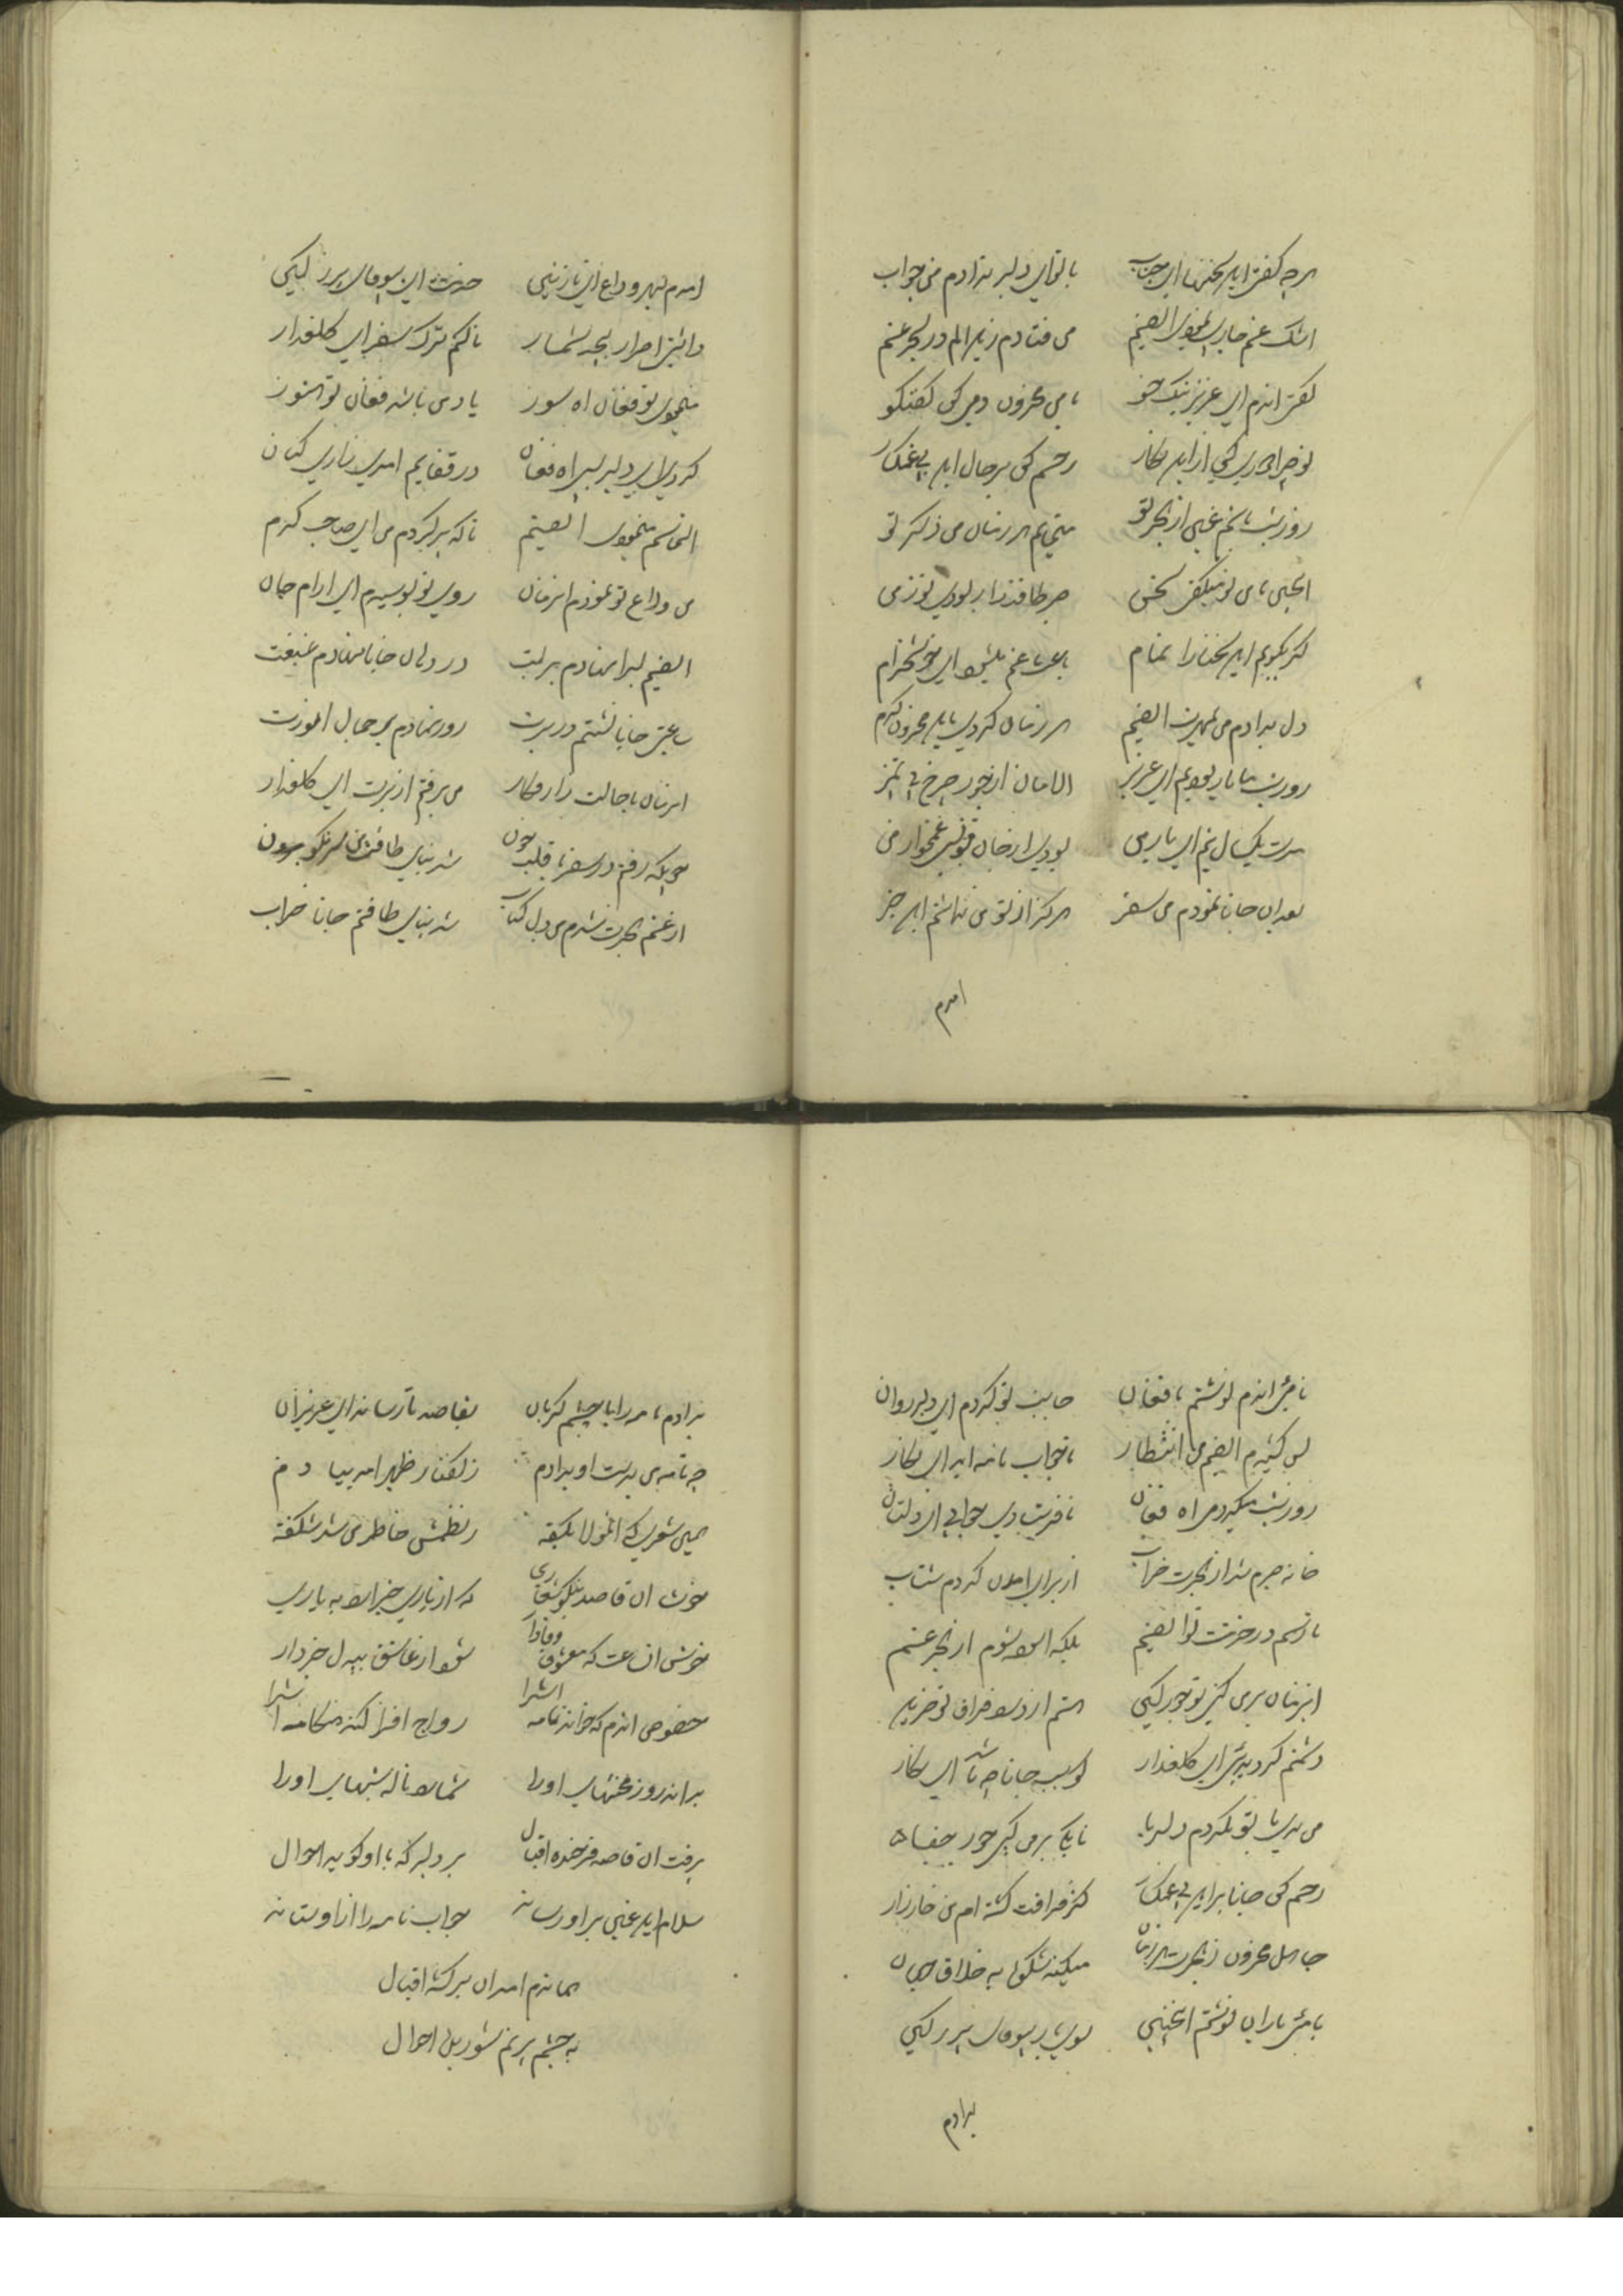 هرچه گفتی این سخنها ای جناب با تو ای دلبر ندادم من جواب
اشک غم جاری نمودی الغنم می فتادم زین الم در بحر غم
گفتی اندم ای عزیز نیک خو با من محزون دمی کن گفتگو
تو چرا دوری کنی از این نگار رحم کن بر حال این بی غمگسار
روز شب باشم غمین از هجر تو مینمایم هر زمان من ذکر تو
اینچنین با من تو میگفتی سخن صبر طاقت را ربودی تو ز من
گر بگویم این سخنها را تمام باعث غم میشود ای خوشخرام
دل بدادم من بمهرت الغنم هر زمان کردی باین محزون کرم
روز شب با یار بودیم ای عزیز الامان از جور چرخ بی تمیز
مدت یکسال نیم ای یار من بودی از جان مونس غمخوار من
بعد از آن جانا نمودم من سفر هرگز از تو من نداشتم این خبر
امدم
امدم بهر وداع ای نازنین حضرت ای بیوفای بی‌رز لیکی
داشتی اصرار بیحد بیشمار تا کنم ترک سفر ای گلعذار
مینمودی تو فغان اه سوز یاد من باشد فغان تو هنوز
کردی ای دلبر بسی اه فغان در قفایم امدی زاری کنان
التماسم مینمودی الغنم تا که برگردم من ای صاحب کرم
من وداع تو نمودم انزمان روی تو بوسیدم ای ارام جان
الغنم لب را نهادم بر لبت در دل جانا نهادم غبغبت
ساعتی جانا نشستم در برت رو نهادم بر جمال انورت
انزمان با حالت زار فکار من برفتم از برت ای گلعذار
چونکه رفتم در سفر با قلب خون شد زنهای طاقتم سرنگون
از غم هجرت شدم من دل کباب شد بنای طاقتم جانا خراب
نامه اندم نوشتم با فغان جانب تو کردم ای دلبر روان
بس کشیدم الغنم من انتظار تا جواب نامه اید ای نگار
روز شب میکردمی اه فغان نافرستادی جوابی ای دلستان
خانه صبرم شد از هجرت خراب از برای امدن کردم شتاب
تا رسم در حضرت تو الغنم بلکه اسوده شوم از بحر غم
این زمان بر من کنی تو جور کین هستم از درد فراق تو حزین
دشمنم گردیده ای گلعذار گو سبب جانا چه باشد ای نگار
من بدی با تو نکردم دلربا تا بکی بر من کنی جور جفا
رحم کن جانا بر این بی غمگسار کز فراقت گشته ام من خار زار
جاهل محزون ز هجرت هر زمان میکند شکوا به خلاق جهان
نامه یاران نوشتم اینچنین سوی یار بیوفای بی‌رز لیکی
بدادم
بدادم نامه را با چشم گریان بقاصد تا رساند ای عزیزان
چه نامه من بدست او بدادم ز گفتار ظهیر امد بیادم
همین شعری که انمولا بگفته ز نظمش خاطر من شد شکفته
خوش ان قاصد نیکو شعاری که از یاری خبر ارد به یاری
خوش ان ساعت که معشوق وفادار شود از عاشق بیدل خبردار
خصوص اندم که خواند نامه اش را رواج افزا کند هنگامه اش را
بداند روز محنتهای اورا شمارد ناله شبهای اورا
برفت ان قاصد فرخنده اقبال بر دلبر که با او گوید احوال
سلام این غمین بر او رساند جواب نامه را از او ستاند
همانده امد ان برگشته اقبال
به چشم پر نم شوریده احوال